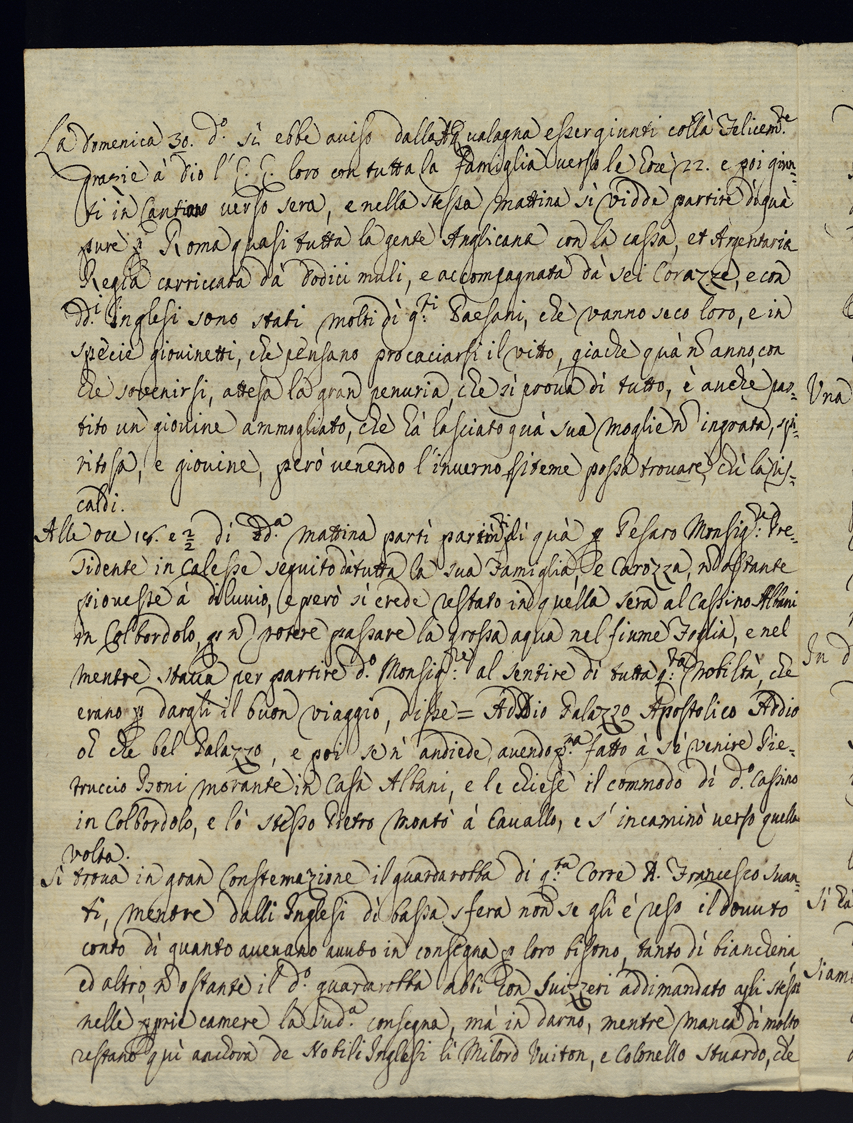 La Domenica 30. d.º si ebbe aviso dalla Aqualagna esser giunti collà felicem.e
grazie à Dio l'E. E. loro con tutta la famiglia verso le hore 22. e poi giun-
ti in Cantiano verso sera, e nella stessa mattina si vidde partire di quà
pure p Roma quasi tutta la gente Anglicana con la cassa, et Argentaria
Regia carriccata dà dodici muli, e accompagnata dà sei Corazze, e con
dd.i Inglesi sono stati molti di q.ti Paesani, che vanno seco loro, e in
specie giovinetti, che pensano procaciarsi il vitto, giache quà n anno con
che sovenirsi, attesa la gran penuria, che si prova di tutto, è anche par-
tito un giovine ammogliato, che hà lasciato quà sua moglie n ingrata, spi-
ritosa, e giovine, però venendo l'inverno si teme possa trovare, chi la ris-
caldi.
Alle ore 18. e 2/2 di dd.a mattina partì di quà p Pesaro Monsig.re Pre-
sidente in Calesse seguito dà tutta la sua famiglia, e Carozza, n ostante
piovesse à diluvio, e però si crede restato in quella sera al Cassino Albani
in Colbordolo, p n potere passare la grossa aqua nel fiume Foglia, e nel
mentre stava per partire d.º Monsig.re al sentire di tutta q.ta Nobiltà, che
erano p dargli il buon viaggio, disse = Addio Palazzo Apostolico Addio
oh che bel Palazzo, e poi se n'andiede, avendo p.ma fatto à sé venire Pie-
truccio Boni morante in Casa Albani, e le chiese il commodo di d.º Cassino
in Colbordolo, e lo stesso Pietro montò à Cavallo, e s'incaminò verso quella
volta.
Si trova in gran Consternazione il guardarobba di q.ta Corte D. Francesco Suan-
ti, mentre dalli Inglesi di bassa sfera non se gli è reso il dovuto
conto di quanto avevano avuto in consegna p loro bisono, tanto di biancheria
ed altro, n ostante il d.º guardarobba abbi con Suizzeri addimandato agli stessi
nelle pprie camere la sud.a consegna, mà in darno, mentre manca di molto
restano quì anchora de Nobili Inglesi li Milord Vuiton, e Colonello Stuardo, che